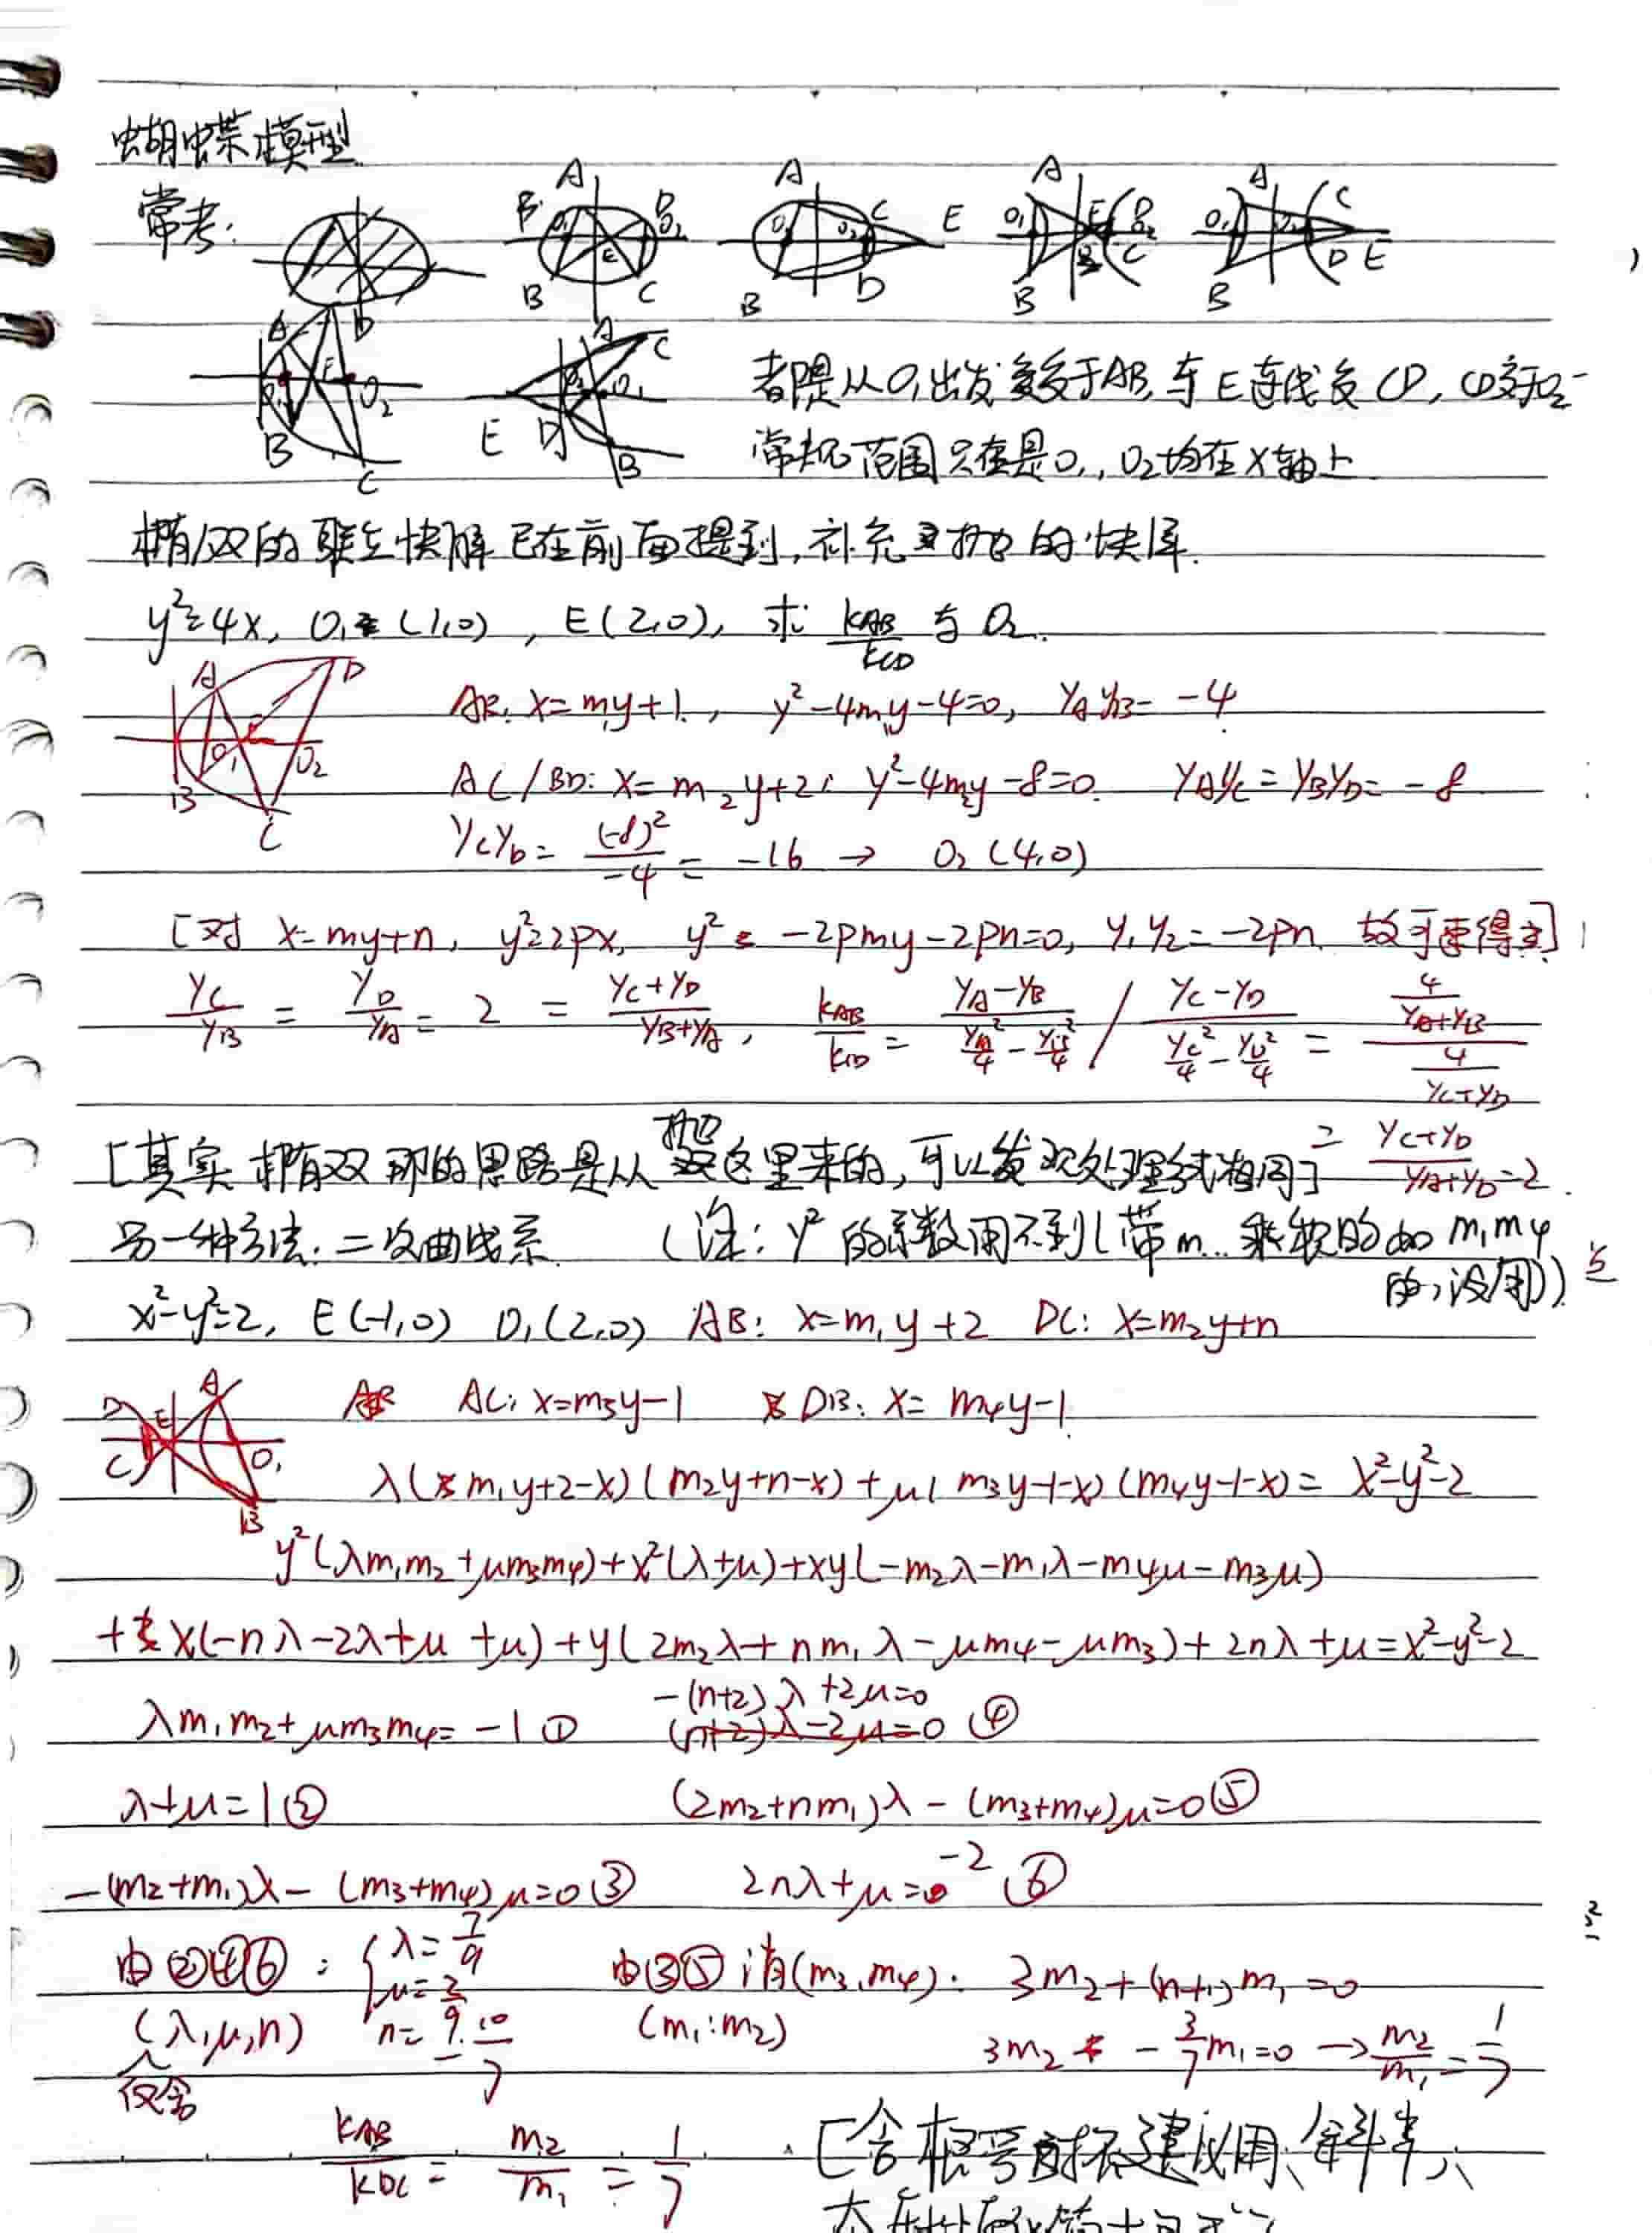 蝴蝶模型
常考:
A B O₁ D O₂ E B C
A O₁ C O₂ E B D
A O₁ E D O₂ B C
A O₁ C O₂ B D E
A D O₁ E O₂ B C
A C O₂ O₁ E D B
都是从O₁出发交于AB,与E连线交CD,CD交于O₂
常规范围只在是O₁,O₂均在x轴上
椭/双的联立快解已在前面提到,补充抛的快解.
y²=4x, O₁(1,0), E(2,0), 求 kAB/kCD 与O₂.
A D O₁ E O₂ B C
AB: x=m₁y+1, y²-4m₁y-4=0, yAyB=-4
AC/BD: x=m₂y+2: y²-4m₂y-8=0. yAyC=yByD=-8
yCyD=(-8)²/-4=-16 → O₂(4,0)
[对 x=my+n, y²=2px, y²-2pmy-2pn=0, y₁y₂=-2pn. 故可速得]
yC/yB=yD/yA=2=(yC+yD)/(yB+yA), kAB/kCD=(yA-yB)/(yA²/4-yB²/4)/(yC-yD)/(yC²/4-yD²/4)=(4/(yA+yB))/(4/(yC+yD))
[其实椭双那的思路是从抛这里来的,可以发现处理方式相同] =(yC+yD)/(yA+yD)=2.
另一种方法:二次曲线系 (注:y²的系数用不到(带m...乘积的如m₁m₄
的,没用))
x²-y²=2, E(-1,0) O₁(2,0) AB: x=m₁y+2 DC: x=m₂y+n
D E A C O₁ B
AC: x=m₃y-1 DB: x=m₄y-1
λ(m₁y+2-x)(m₂y+n-x)+μ(m₃y-1-x)(m₄y-1-x)=x²-y²-2
y²(λm₁m₂+μm₃m₄)+x²(λ+μ)+xy(-m₂λ-m₁λ-m₄μ-m₃μ)
+x(-nλ-2λ+μ+μ)+y(2m₂λ+nm₁λ-μm₄-μm₃)+2nλ+μ=x²-y²-2
-(n+2)λ+2μ=0
λm₁m₂+μm₃m₄=-1① (n+2)λ-2μ=0④
λ+μ=1② (2m₂+nm₁)λ-(m₃+m₄)μ=0⑤
-(m₂+m₁)λ-(m₃+m₄)μ=0③ 2nλ+μ=-2⑥
由②④⑥: {λ=7/9 μ=2/9 n=-10/7 由③⑤消(m₃,m₄): 3m₂+(n+1)m₁=0
(λ,μ,n) (m₁:m₂) 3m₂-3/7m₁=0→m₂/m₁=1/7
仅含
kAB/kDC=m₂/m₁=1/7 [含根号时不建议用、解半天